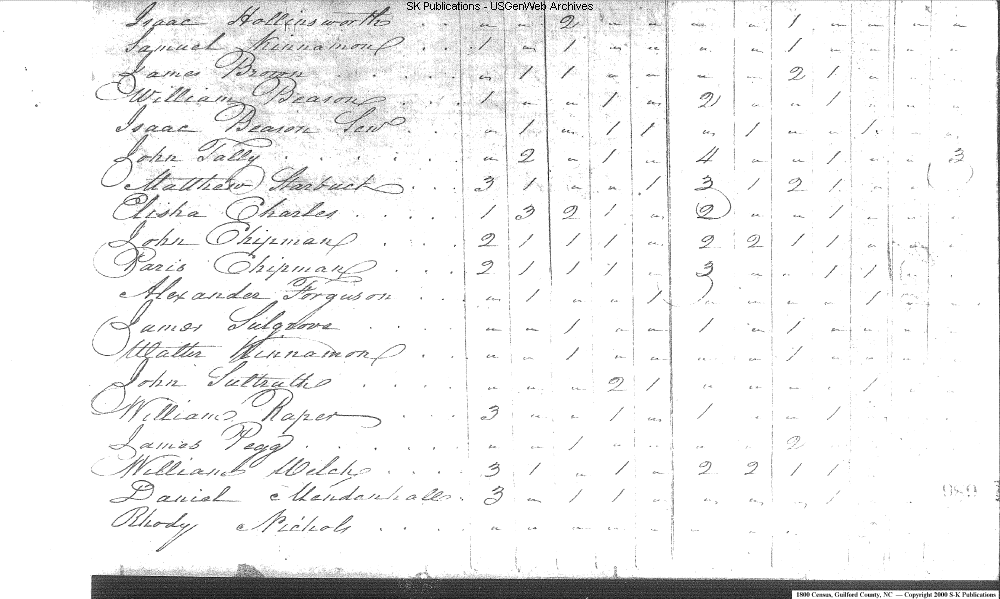 SK Publications - USGenWeb Archives
Isaac Hollinsworth . . " " 2 " " " " 1 " " " "
Samuel Kinnamon . . 1 " 1 " " " " 1 " "
James Brown . . . . " 1 1 " " " " 2 1 "
William Beason . . . 1 " " 1 " 2 " " 1 "
Isaac Beason Sen . . " 1 " 1 1 " 1 " " 1 "
John Tally . . . . . " 2 " 1 " 4 " " 1 " " 3
Matthew Starbuck . . . 3 1 " " 1 3 1 2 1 " "
Elisha Charles . . . . 1 3 2 1 " 2 " " 1 " "
John Chipman . . . 2 1 1 1 " 2 2 1 1 " "
Paris Chipman . . . 2 1 1 1 " 3 " " 1 1 "
Alexander Forguson . . " 1 " " 1 " " " " 1 "
James Sulgrove . . . . " " 1 " " 1 " 1 " "
Walter Kinnamon . . " " 1 " " " " 1 " "
John . . . . " " " 2 1 " " " " 1 "
William Raper . . . 3 " " 1 " 1 " " 1 "
James Pegg . . . . " " 1 " " " " 2
William Welch . . . . 3 1 " 1 " 2 2 1 1
Daniel Mendenhall . 3 " 1 1 " " " " 1
Rhody Nichols . . . . " " " " " " " "
1800 Census, Guilford County, NC — Copyright 2000 S-K Publications